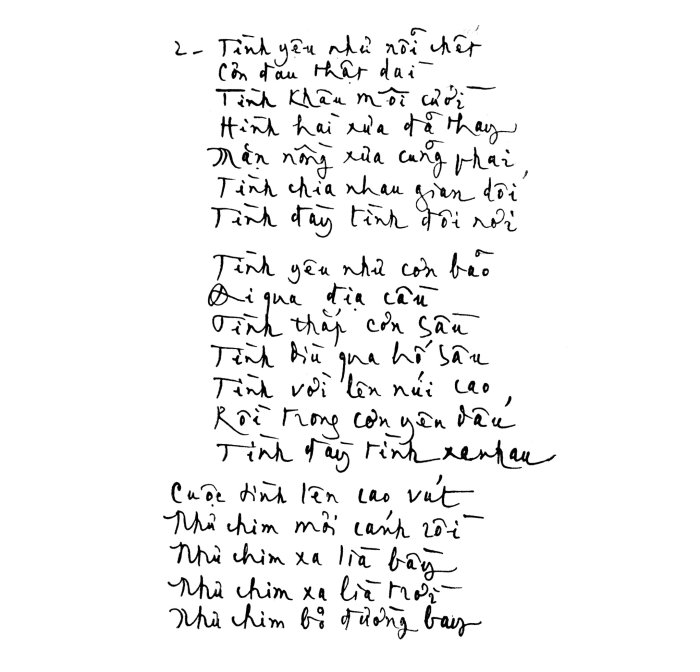 2- Tình yêu như nỗi chết
Cơn đau thật dài
Tình khâu môi cười
Hình hài xưa đã thay
Mặn nồng xưa cũng phai
Tình chia nhau gian dối
Tình đày tình đôi nơi
Tình yêu như cơn bão
Đi qua địa cầu
Tình thắp cơn sầu
Tình dìu qua hố sâu
Tình vời lên núi cao
Rồi trong cơn yêu dấu
Tình đày tình xa nhau
Cuộc tình lên cao vút
Như chim mỏi cánh rồi
Như chim xa lìa bầy
Như chim xa lìa trời
Như chim bỏ đường bay